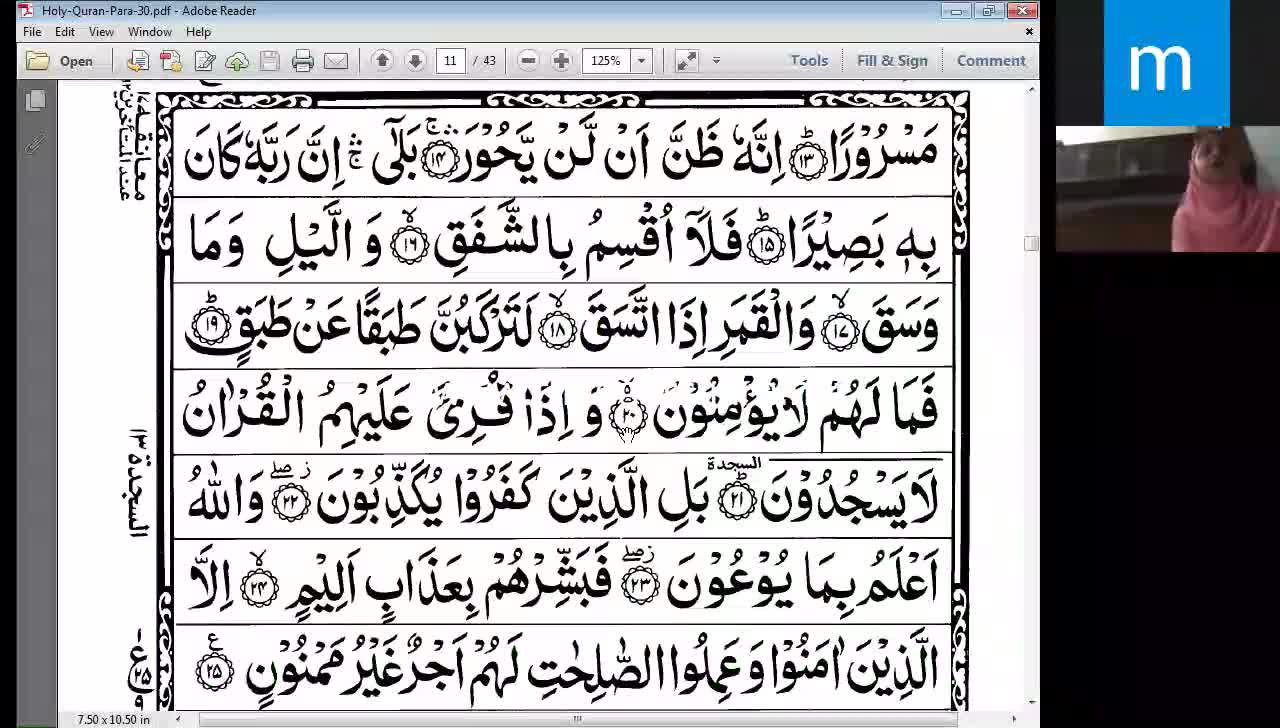 Holy-Quran-Para-30.pdf - Adobe Reader
File Edit View Window Help
Open 11 / 43 125% Tools Fill & Sign Comment
m
مَسْرُوْرًا ؕ﴿۱۳﴾ اِنَّهٗ ظَنَّ اَنْ لَّنْ يَّحُوْرَ ۚۛ﴿۱۴﴾ بَلٰۤى ۚۛ اِنَّ رَبَّهٗ كَانَ
بِهٖ بَصِيْرًا ؕ﴿۱۵﴾ فَلَاۤ اُقْسِمُ بِالشَّفَقِ ۙ﴿۱۶﴾ وَ الَّيْلِ وَمَا
وَسَقَ ۙ﴿۱۷﴾ وَالْقَمَرِ اِذَا اتَّسَقَ ۙ﴿۱۸﴾ لَتَرْكَبُنَّ طَبَقًا عَنْ طَبَقٍ ؕ﴿۱۹﴾
فَمَا لَهُمْ لَا يُؤْمِنُوْنَ ۙ﴿۲۰﴾ وَ اِذَا قُرِئَ عَلَيْهِمُ الْقُرْاٰنُ
لَا يَسْجُدُوْنَ ؕ﴿۲۱﴾ السجدة بَلِ الَّذِيْنَ كَفَرُوْا يُكَذِّبُوْنَ ۖز﴿۲۲﴾ وَاللّٰهُ
اَعْلَمُ بِمَا يُوْعُوْنَ ۖز﴿۲۳﴾ فَبَشِّرْهُمْ بِعَذَابٍ اَلِيْمٍ ۙ﴿۲۴﴾ اِلَّا
الَّذِيْنَ اٰمَنُوْا وَ عَمِلُوا الصّٰلِحٰتِ لَهُمْ اَجْرٌ غَيْرُ مَمْنُوْنٍ ﴿۲۵﴾ ع
السجدة ۱۳
7.50 x 10.50 in